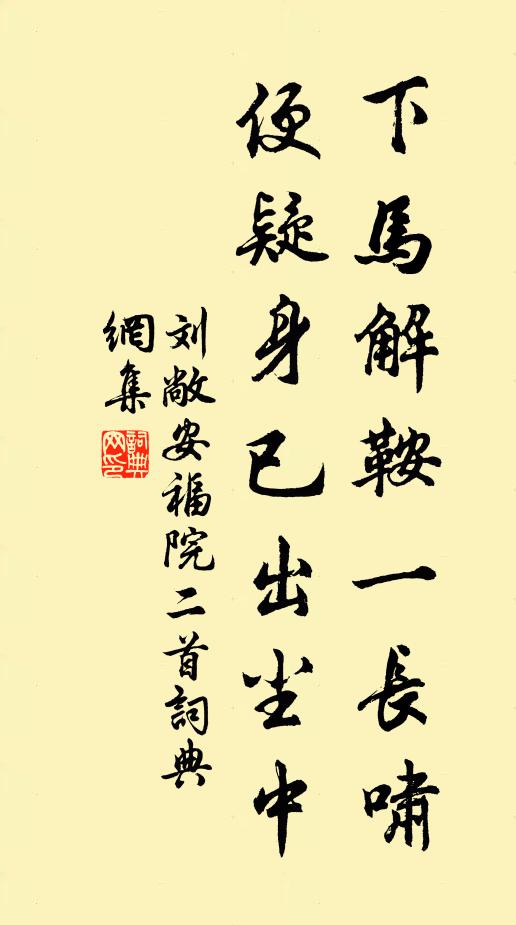 下馬解鞍一長嘯
便疑身已出尘中
刘敞安福院二首詞典
網集
詞典
网印